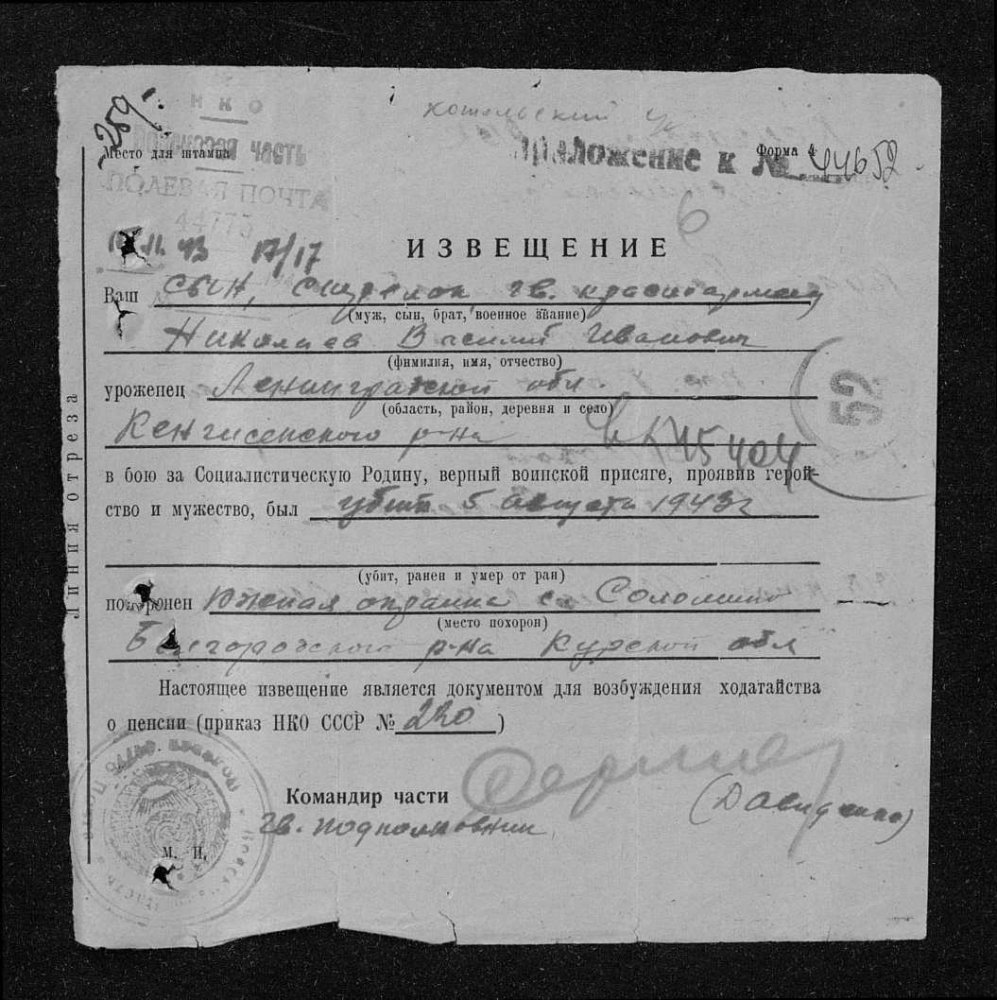 259
НКО
Котельский
Место для штампа
часть
Форма 4
Приложение к № 44652
ПОЛЕВАЯ ПОЧТА
44775
6
11. 43 17/17
ИЗВЕЩЕНИЕ
Ваш сын, стрелок гв. красноармеец
(муж, сын, брат, военное звание)
Николаев Василий Иванович
(фимилия, имя, отчество)
уроженец Ленинградской обл.
(область, район, деревня и село)
52
Кенгисепского р-на
45404
в бою за Социалистическую Родину, верный воинской присяге, проявив герой-
ство и мужество, был убит 5 августа 1943г
(убит, ранен и умер от ран)
похоронен Южная окраина с. Соломино
(место похорон)
Белгородского р-на Курской обл
Настоящее извещение является документом для возбуждения ходатайства
о пенсии (приказ НКО СССР № 220)
Командир части
гв. подполковник
(Давиденко)
М. П.
Линия отреза